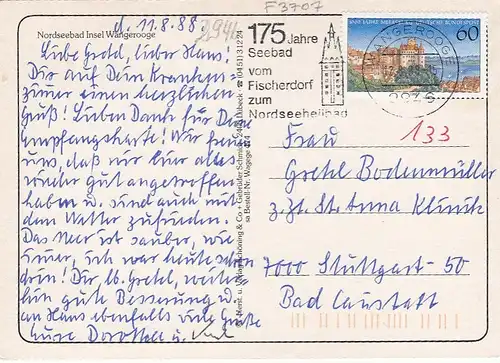 F3707
Nordseebad Insel Wangerooge
d. 11.8.88
2941
Liebe Gretel, lieber Hans!
Dir auf Dein Kranken-
zimer einen herzlichen
Gruß! Lieben Dank für Deine
Empfangskarte! Wir freuen
uns, daß wir hier alles
wieder gut angetroffen
haben u. sind auch mit
dem Wetter zufrieden.
Das Meer ist sauber, wie
immer, ich war heute schon
drin! Dir, lb. Gretel, weiter-
hin gute Besserung u.
an Hans ebenfalls viele Grüße
Eure Dorothea u.
175 Jahre
Seebad
vom
Fischerdorf
zum
Nordseeheilbad
WANGEROOGE
60
133
Frau
Gretel Bodenmüller
z.Zt. St. Anna Klinik
7000 Stuttgart-50
Bad Cannstatt